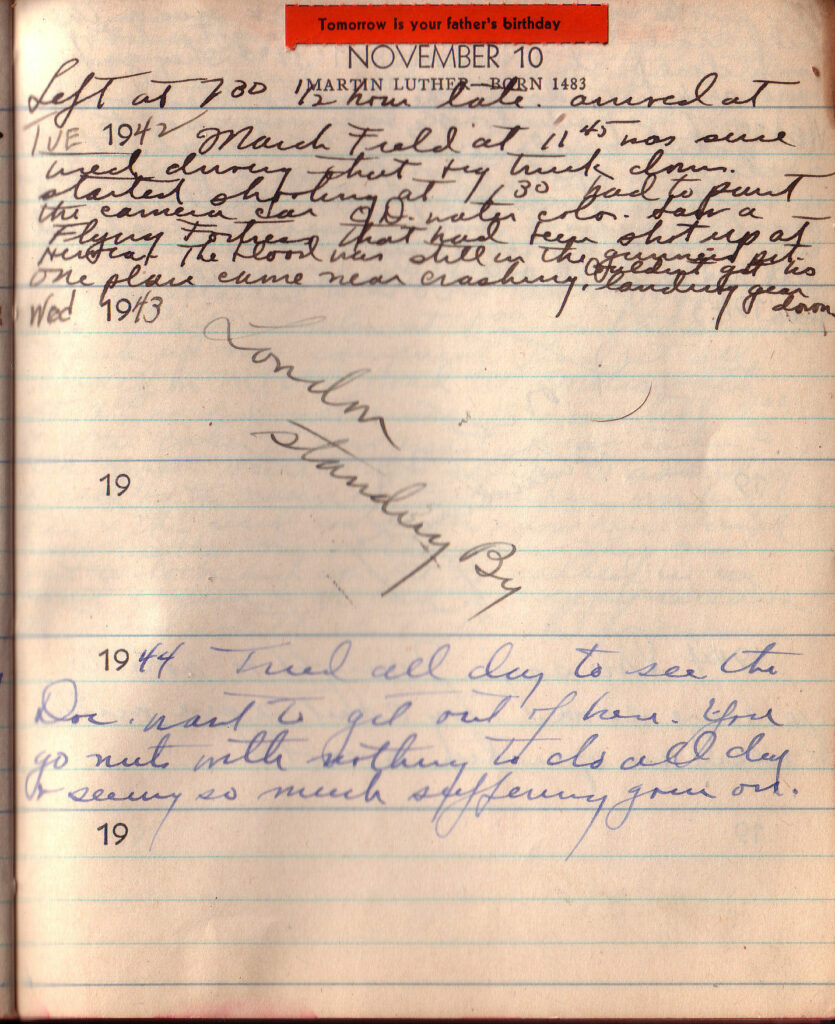 Tomorrow is your father's birthday
NOVEMBER 10
MARTIN LUTHER—BORN 1483
Left at 730 1/2 hour late. arrived at
TUE 1942 March Field at 11 45 was sure
tired driving that big truck down.
started shooting at 1 30 had to paint
the camera car O.D. water color. Saw a
Flying Fortress that had been shot up at
The blood was still in the gunners pit.
One plane came near crashing. Couldn't get his
landing gear
down
Wed 1943
London
Standing By
19
1944 Tried all day to see the
Doc. want to get out of here. You
go nuts with nothing to do all day
& seeing so much suffering goin on.
19